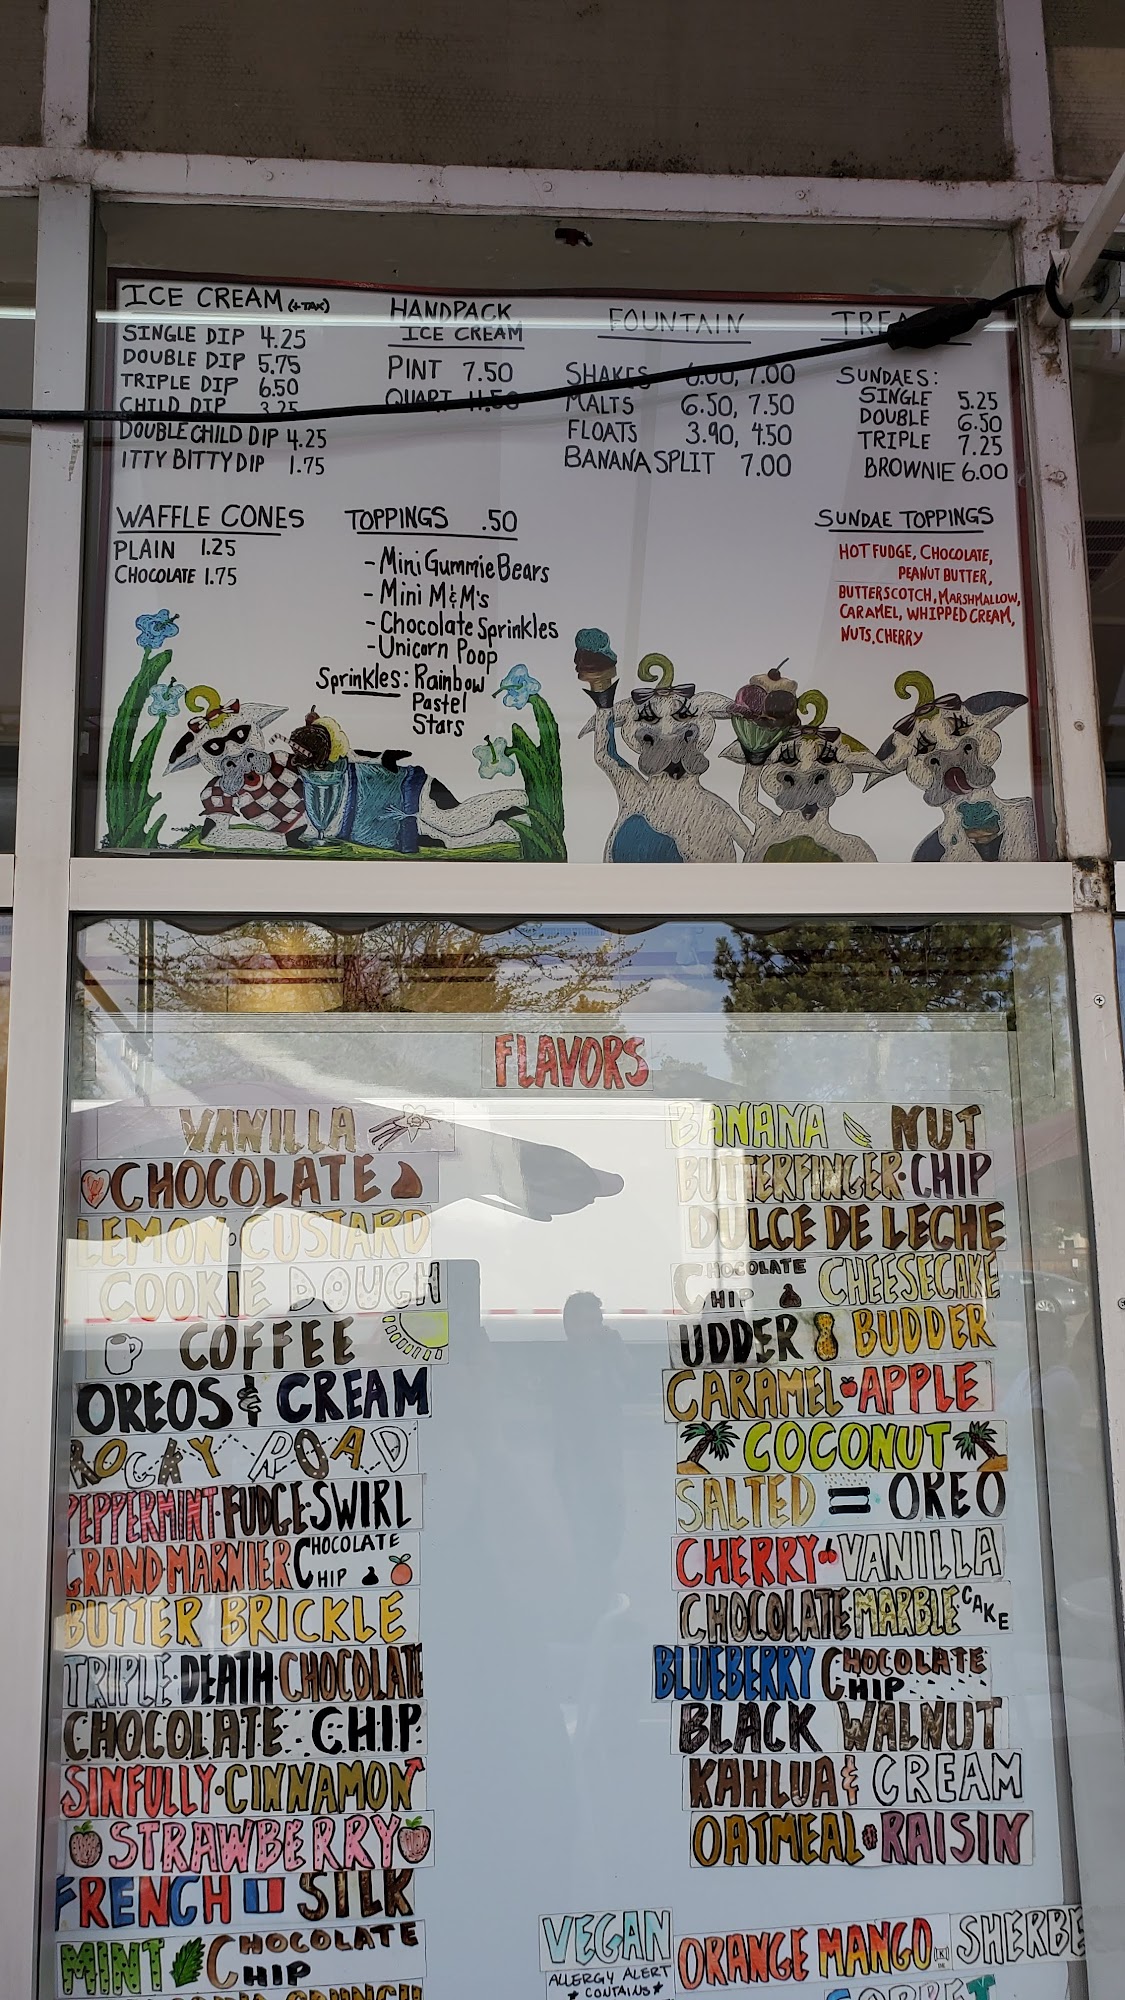 ICE CREAM (+TAX)
SINGLE DIP 4.25
DOUBLE DIP 5.75
TRIPLE DIP 6.50
CHILD DIP 3.25
DOUBLE CHILD DIP 4.25
ITTY BITTY DIP 1.75
HANDPACK
ICE CREAM
PINT 7.50
QUART 11.50
FOUNTAIN
SHAKES 6.00, 7.00
MALTS 6.50, 7.50
FLOATS 3.90, 4.50
BANANA SPLIT 7.00
SUNDAES:
SINGLE 5.25
DOUBLE 6.50
TRIPLE 7.25
BROWNIE 6.00
WAFFLE CONES
PLAIN 1.25
CHOCOLATE 1.75
TOPPINGS .50
- Mini Gummie Bears
- Mini M&M's
- Chocolate Sprinkles
- Unicorn Poop
Sprinkles: Rainbow
Pastel
Stars
SUNDAE TOPPINGS
HOT FUDGE, CHOCOLATE,
PEANUT BUTTER,
BUTTERSCOTCH, MARSHMALLOW,
CARAMEL, WHIPPED CREAM,
NUTS, CHERRY
FLAVORS
VANILLA
CHOCOLATE
LEMON CUSTARD
COOKIE DOUGH
COFFEE
OREOS & CREAM
ROCKY ROAD
PEPPERMINT FUDGE SWIRL
GRAND MARNIER CHOCOLATE
CHIP
BUTTER BRICKLE
TRIPLE DEATH CHOCOLATE
CHOCOLATE CHIP
SINFULLY CINNAMON
STRAWBERRY
FRENCH SILK
MINT CHOCOLATE
CHIP
BANANA NUT
BUTTERFINGER CHIP
DULCE DE LECHE
CHOCOLATE
CHIP CHEESECAKE
UDDER BUDDER
CARAMEL APPLE
COCONUT
SALTED OREO
CHERRY VANILLA
CHOCOLATE MARBLE CAKE
BLUEBERRY CHOCOLATE
CHIP
BLACK WALNUT
KAHLUA & CREAM
OATMEAL RAISIN
VEGAN
ALLERGY ALERT
* CONTAINS *
ORANGE MANGO SHERBE